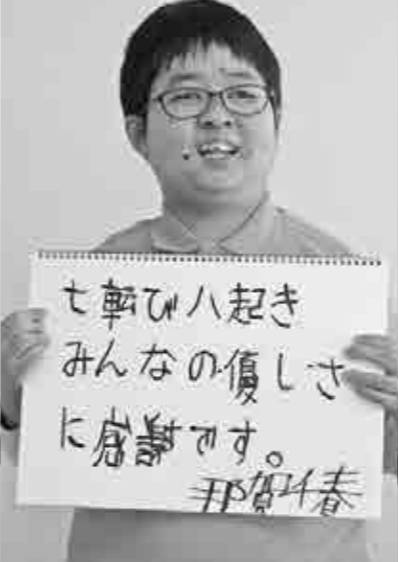 七転び八起き
みんなの優しさ
に感謝です。
那賀千春